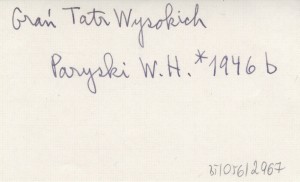 Grań Tatr Wysokich
Paryski W.H. *1946 b
b/056/2967